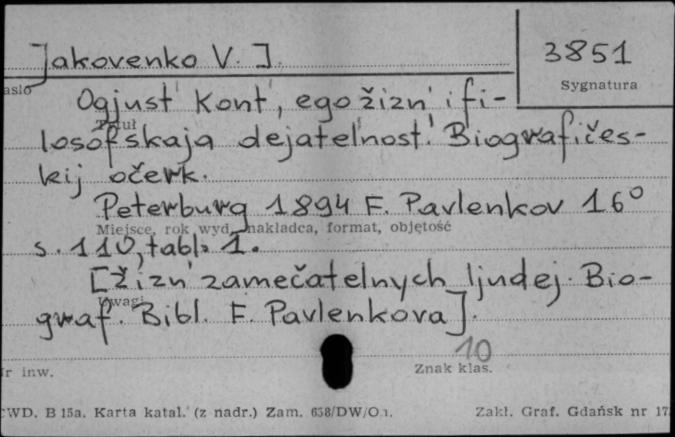 Jakovenko V. J.
3851
asło
Sygnatura
Ogjust Kont, ego žizn' i fi-
Tytuł
losofskaja dejatel'nost'. Biografičes-
kij očerk.
Peterburg 1894 F. Pavlenkov 16°
Miejsce, rok wyd., nakładca, format, objętość
s. 110, tabl. 1.
[Žizn' zamečatelnych ljudej. Bio-
Uwagi
graf. Bibl. F. Pavlenkova].
10
r inw.
Znak klas.
CWD. B 15a. Karta katal. (z nadr.) Zam. 658/DW/O
Zakł. Graf. Gdańsk nr 17